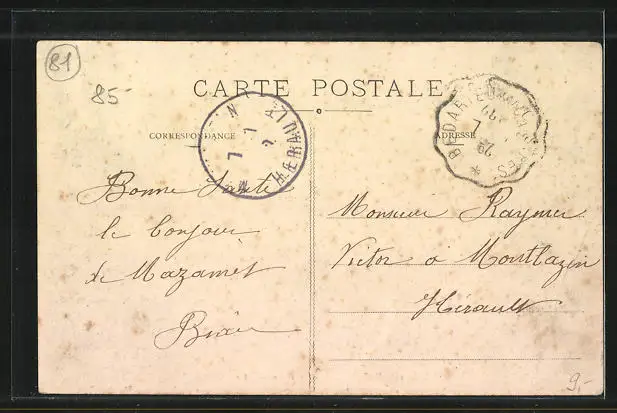 81
85-
CARTE POSTALE
CORRESPONDANCE
ADRESSE
HERAULT
BEDARIEUX
Bonne Santé
le bonjour
de Mazamet
Monsieur Raymer
Victor à Montbazin
Hérault
9.-